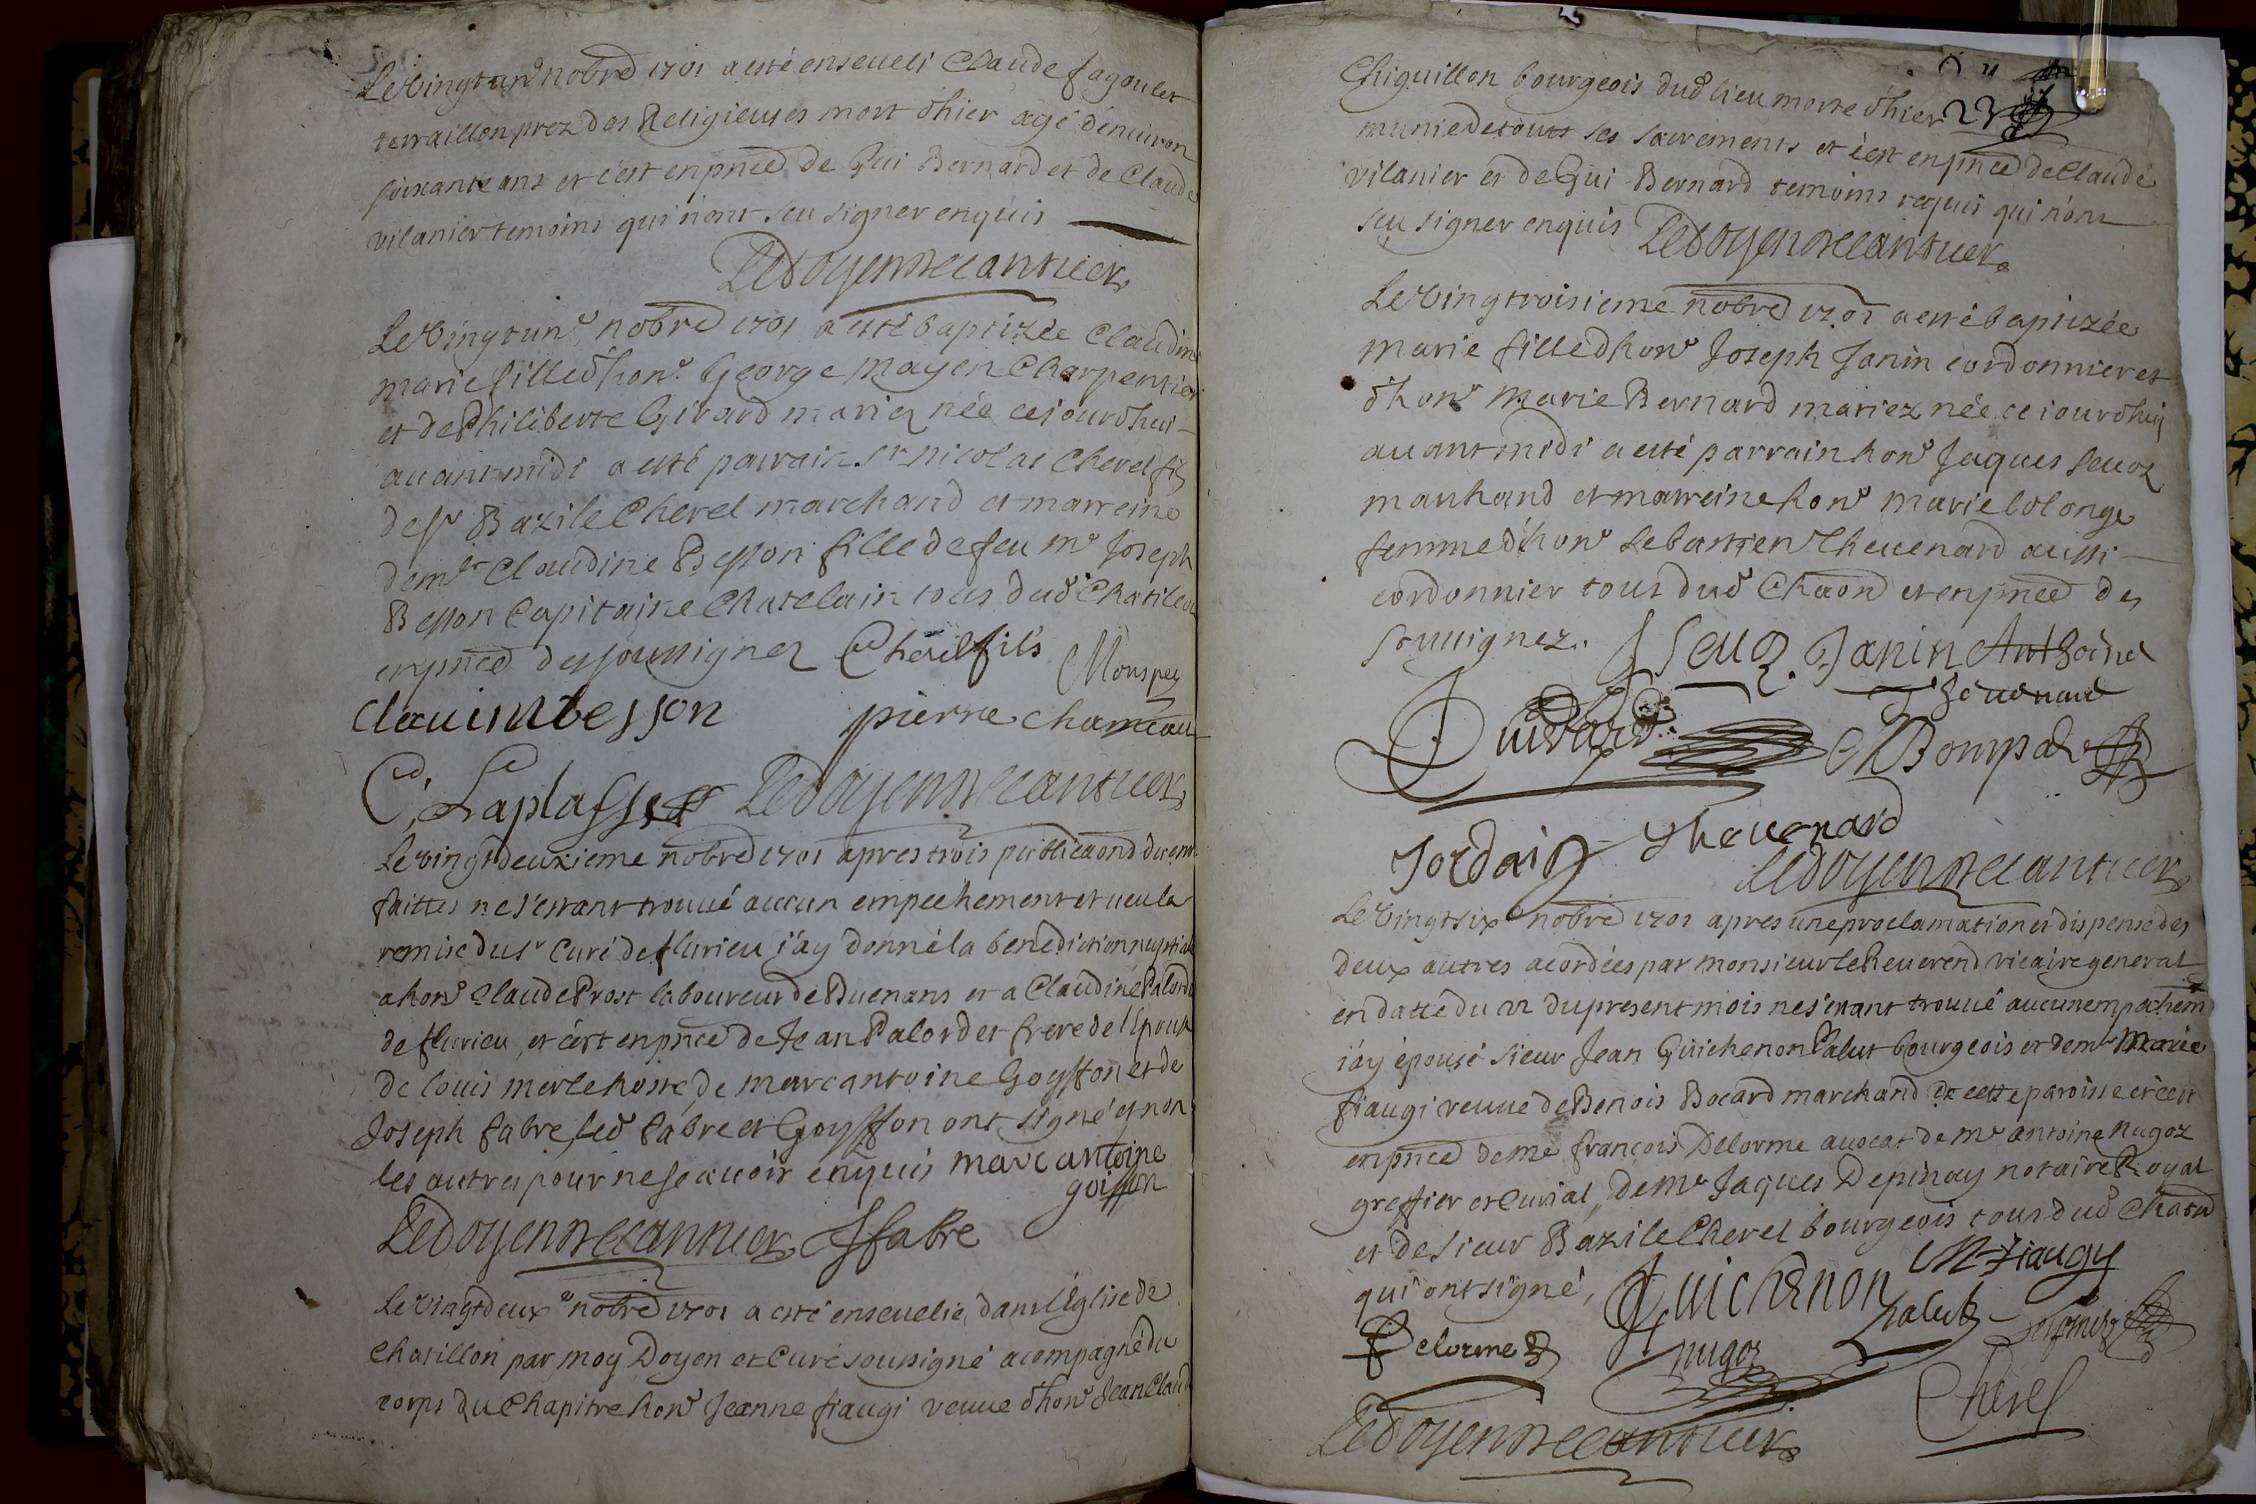 Le vingt un.e nobre 1701 a esté enseueli Claude fagoulet
terraillon prez des Religieuses mort d'hier agé d'enuiron
soixante ans et c'est en pnce de Gui Bernard et de Claude
vilanier temoins qui n'ont seu signer enquis
Le doyen
Le vingt un.e nobre 1701 a esté baptizée Claudine
marie fille d'hon.e George mayen Charpentier
et de Philiberte Girard mariez née ce jourd'hui
auant midi a esté parrain Sr nicolas Cherel fils
de Sr Bazile Cherel marchand et marreine
dem.le Claudine Besson fille de feu Mr Joseph
Besson Capitaine Chatelain tous dud Chatillon
en pnce des soussignez Cherel fils Monspey
clauin besson pierre chameau
C. Laplasse Le doyen
Le vingt deuxieme nobre 1701 apres trois publicaons duem.
faittes ne s'estant trouué aucun empechement et ueu la
remise du Sr Curé de flurieu j'ay donné la benediction nuptiale
a hon.e Claude Prost laboureur de Buenans et a Claudine Palordet
de flurieu, et c'est en pnce de Jean Palordet frere de l'épouse
de louis merle hoste de marc antoine Goyffon et de
Joseph fabre, led fabre et Goyffon ont signé et non
les autres pour ne scauoir enquis marc antoine
goiffon
Le doyen J fabre
Le vingt deux.e nobre 1701 a esté enseuelie, dans l'Église de
Chatillon par moy Doyen et Curé soussigné acompagné du
corps du Chapitre hon.e Jeanne fiaugi veuue d'hon.e Jean Claude
Chiguillon bourgeois dud lieu morte d'hier
munie de touts ses sacrements et c'est en pnce de Claude
vilanier et de Gui Bernard temoins requis qui n'ont
seu signer enquis Le doyen
Le vingt troisieme nobre 1701 a esté baptizée
marie fille d'hon.e Joseph Janin cordonnier et
d'hon.e Marie Bernard mariez née ce jourd'huy
auant midi a esté parrain hon.e Jaques seuoz
marchand et marreine hon.e marie bolonge
femme d'hon.e Sebastien Theuenard aussi
cordonnier tous dud Chaon et en pnce des
soussignez. J Seuoz. J. Janin Anthoine
Theuenard
Guidard M Bompar
Jordain Theuenard
Le doyen
Le vingt six.e nobre 1701 apres une proclamation et dispense des
deux autres acordées par monsieur le Reuerend vicaire general
en datte du 22 du present mois ne s'etant trouué aucun empechem
j'ay épousé sieur Jean Guichenon Palut bourgeois et dem.le Marie
fiaugi veuue de Benois Bocard marchand de cette paroisse et c'est
en pnce de me françois Delorme auocat de Mr antoine nugoz
greffier et Curial, de Mr Jaques Depinay notaire Royal
et de sieur Bazile Cherel bourgeois tous dud Chaon
qui ont signé, Guichenon M fiaugy
palut
Delorme nugoz
Cherel
Le doyen